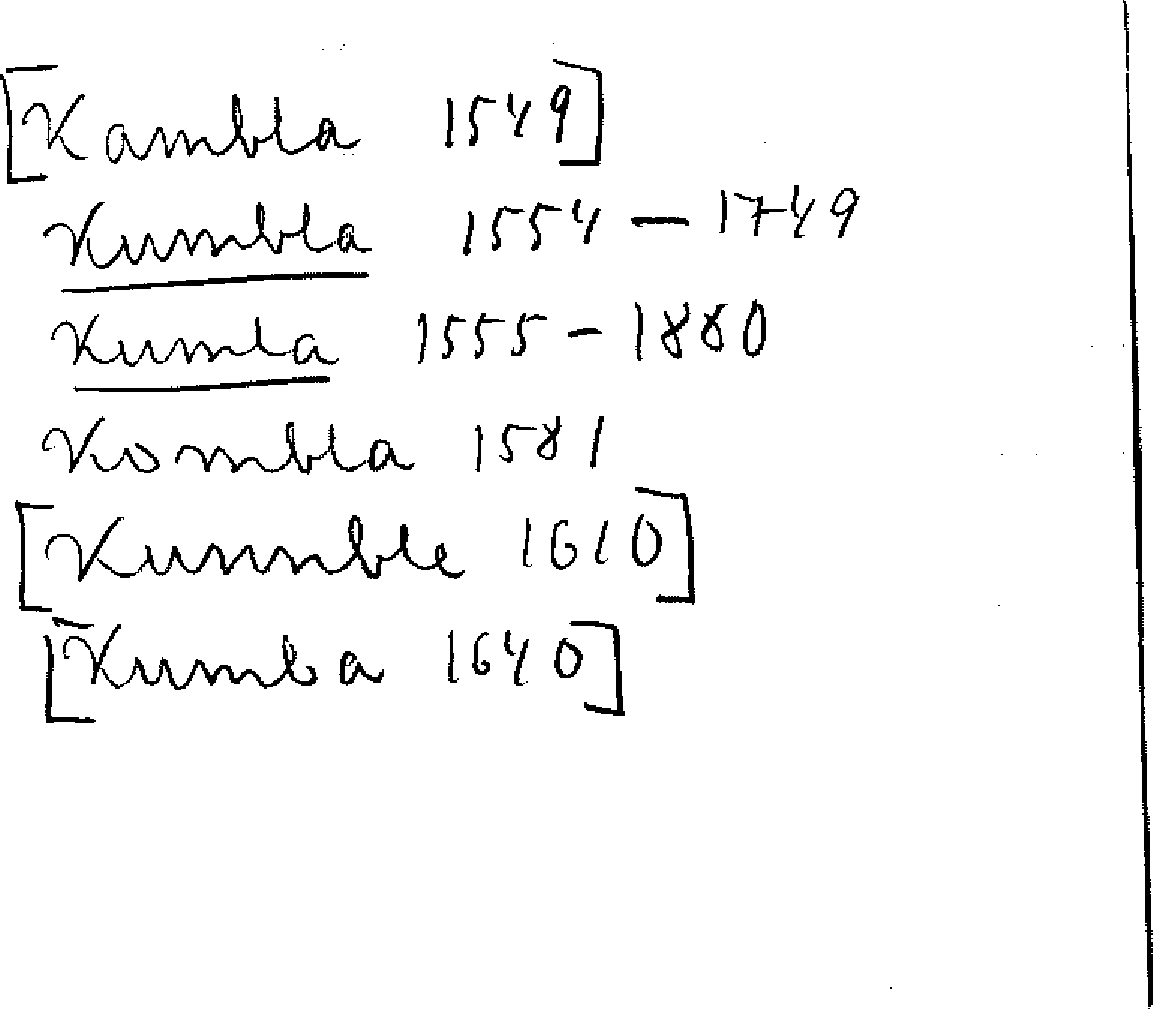 [Kambla 1549]
Kumbla 1554 – 1749
Kumla 1555 – 1880
Kombla 1581
[Kumble 1610]
[Kumba 1640]